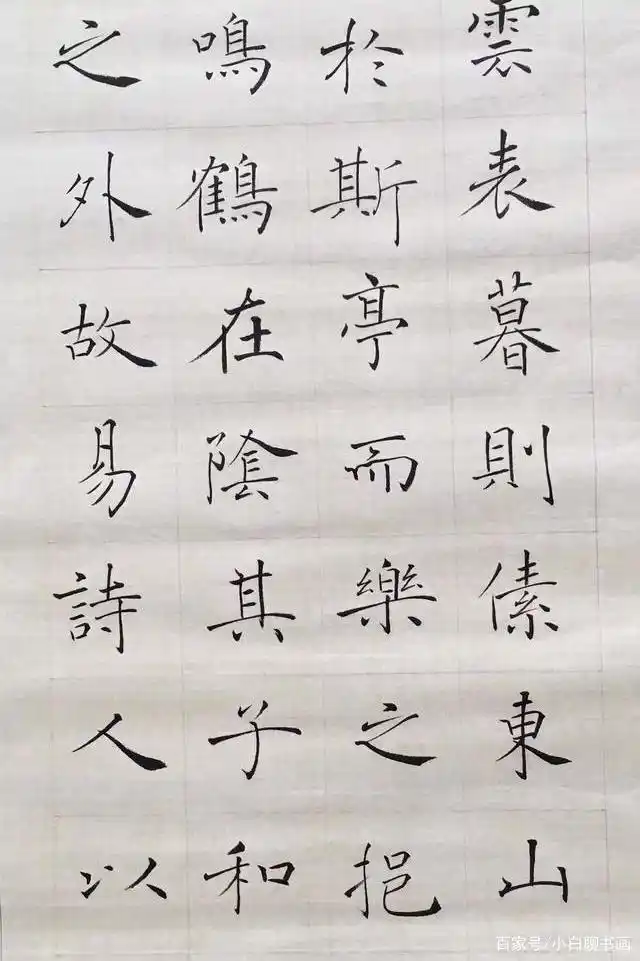 雲表暮則傃東山
於斯亭而樂之挹
鳴鶴在陰其子和
之外故易詩人以
百家号/小白聊书画